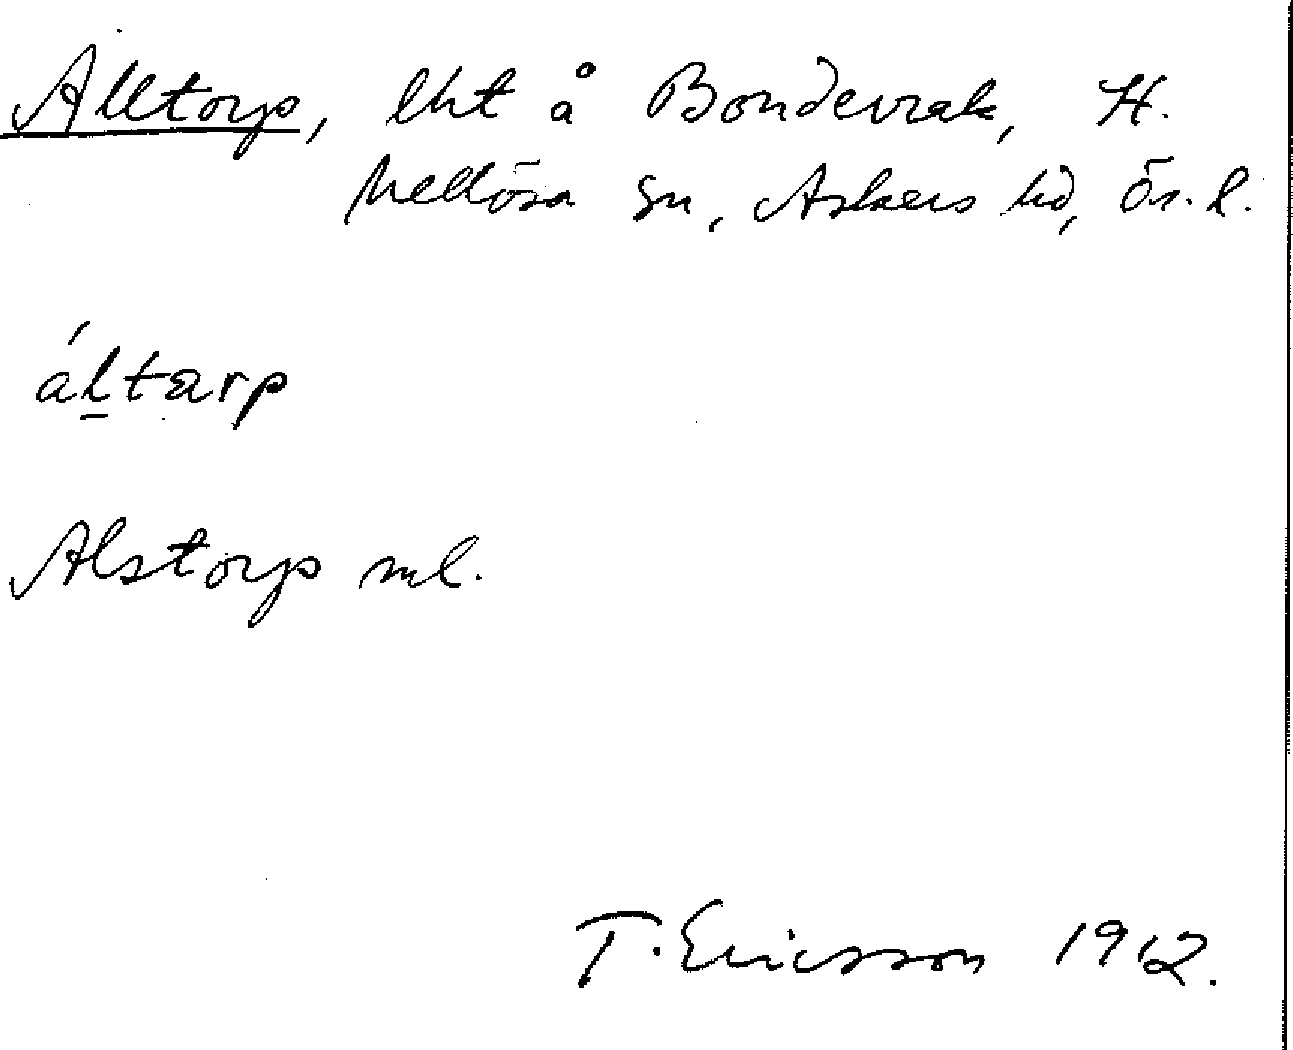 Alltorp, lht å Bondevrak, H.
Mellösa sn, Askers hd, Ör. l.
áḻtarp
Alstorp ml.
T. Ericsson 1912.